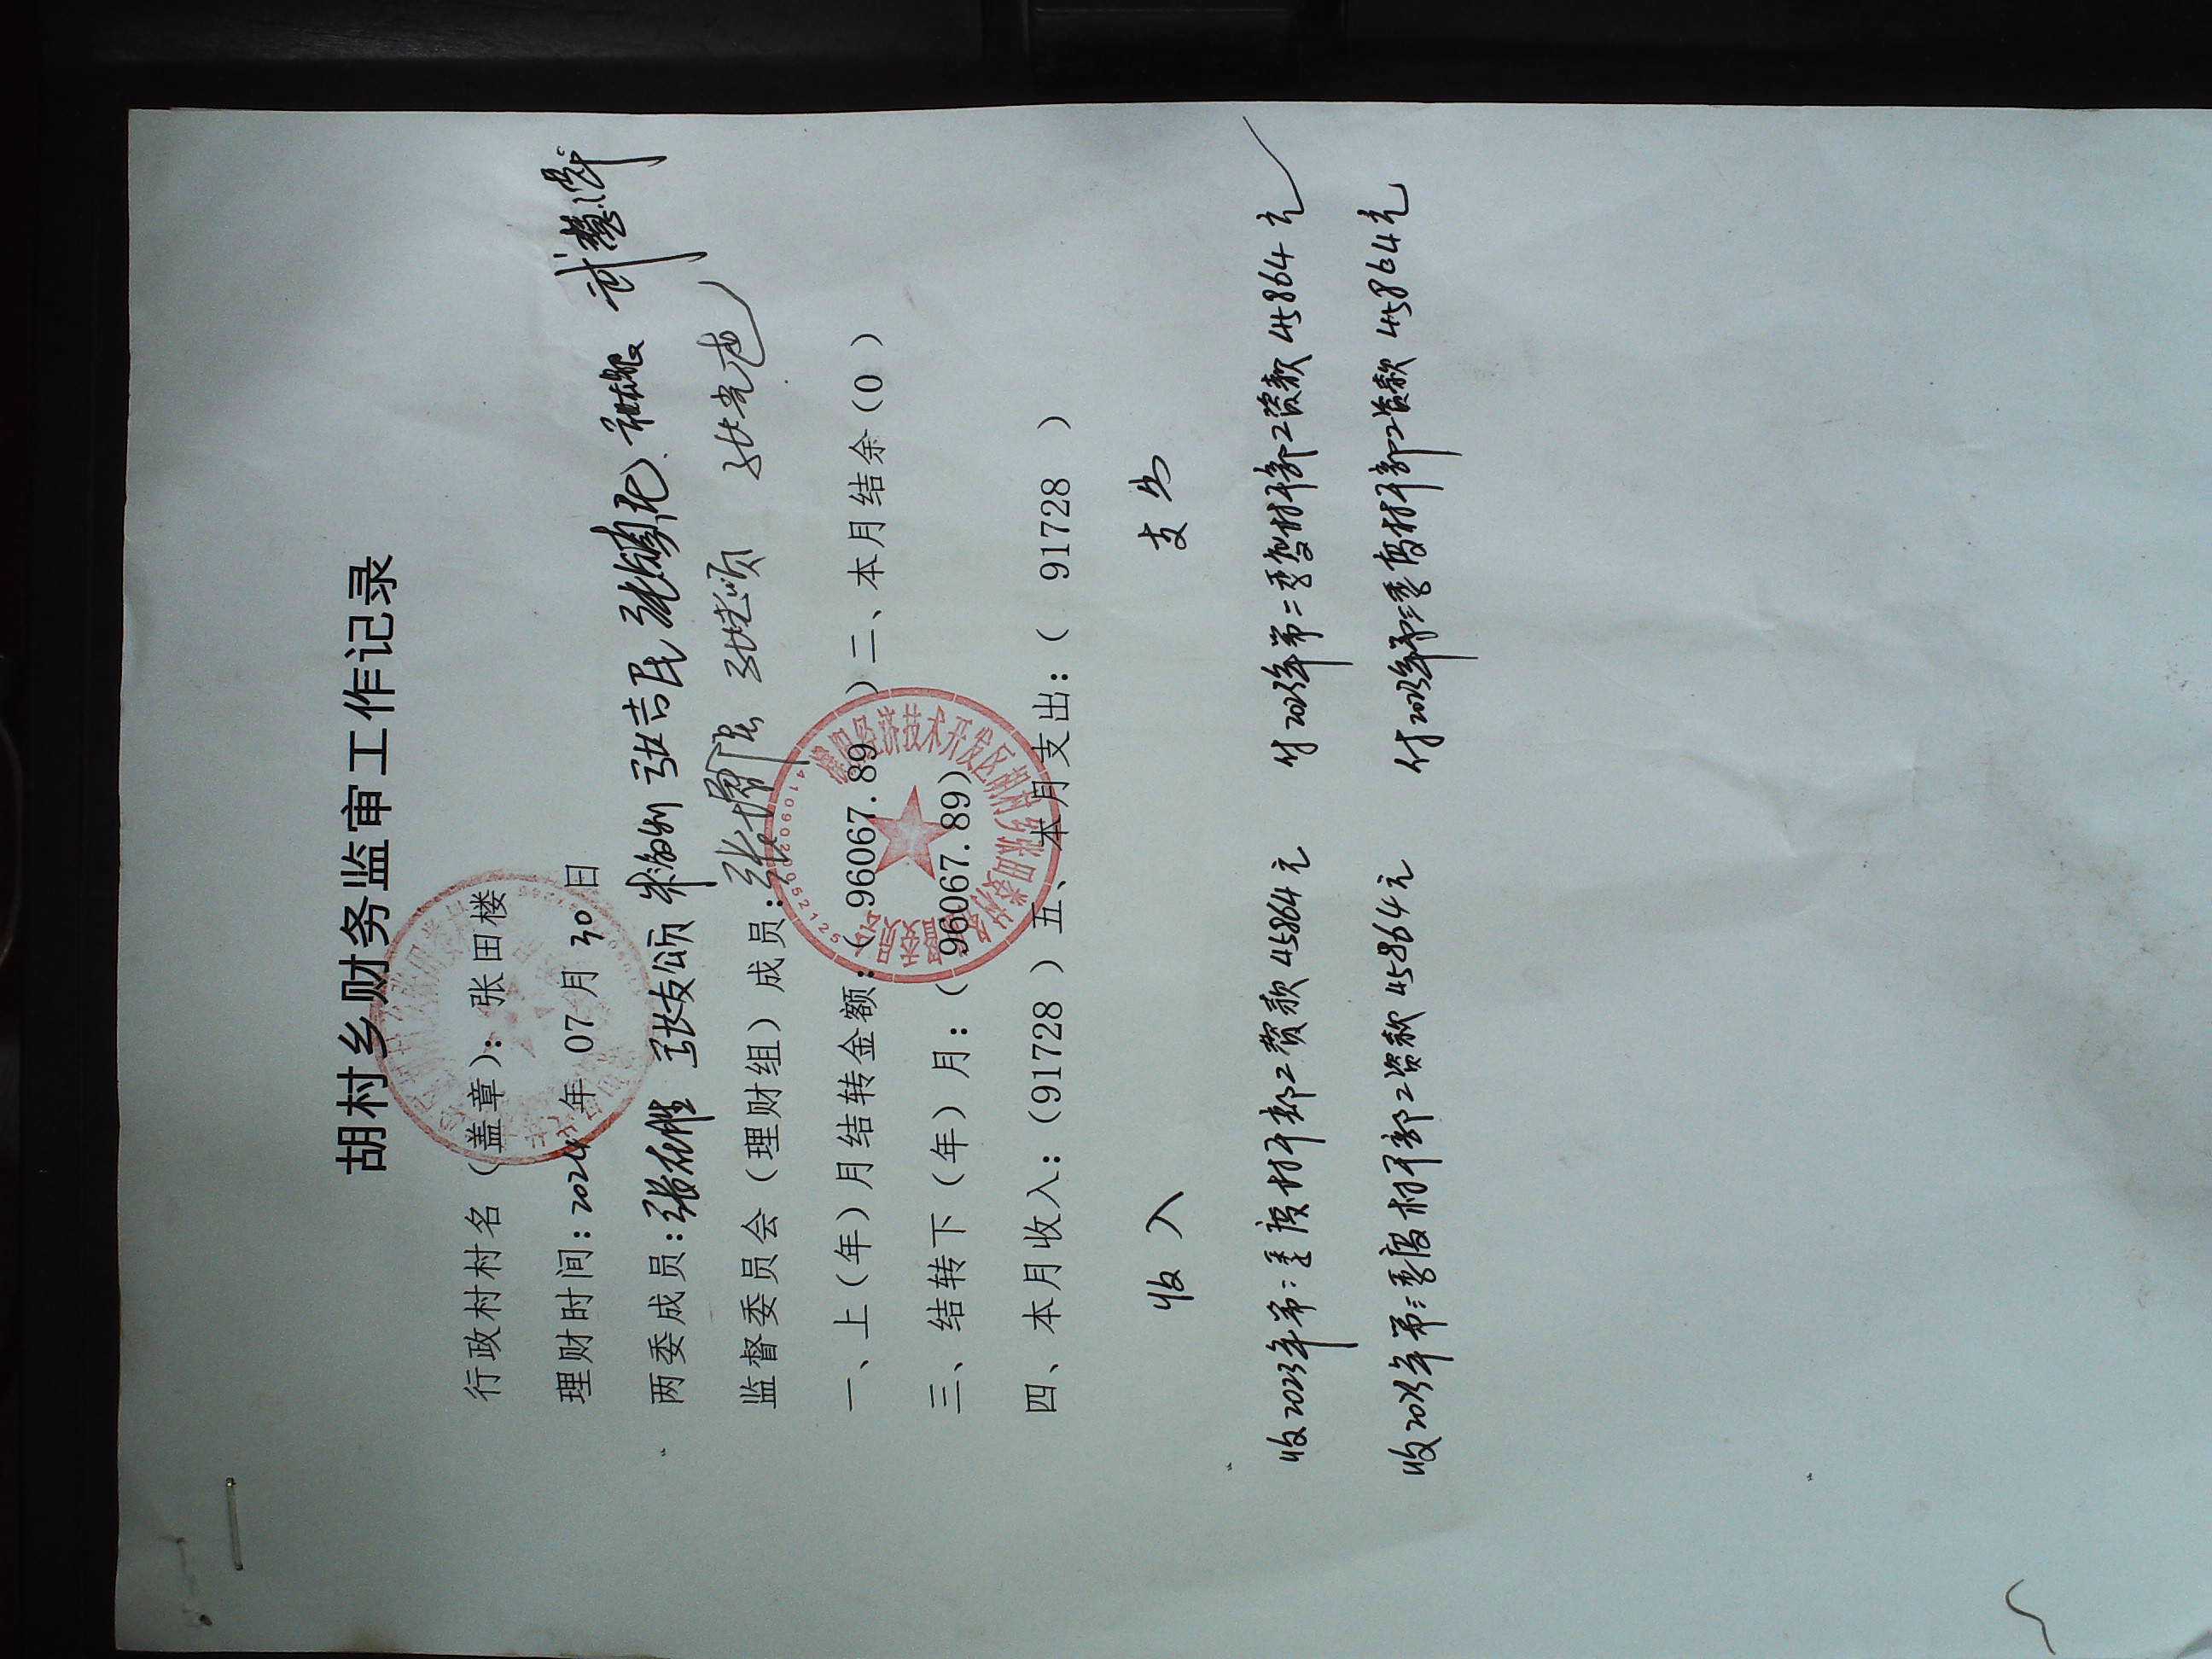 胡村乡财务监审工作记录
行政村村名（盖章）：张田楼
理财时间：2024年 07 月 30 日
两委成员：张 张友公项 张吉民 张
监督委员会（理财组）成员：张
一、上（年）月结转金额：（ 96067.89 ）二、本月结余（0 ）
三、结转下（年）月：（ 96067.89）
四、本月收入：（91728 ）五、本月支出：（ 91728 ）
收入 支出
收2023年第二季度村干部工资款45864元 付2023年第二季度村干部工资款45864元
收2023年第三季度村干部工资款45864元 付2023年第三季度村干部工资款45864元
濮阳经济技术开发区胡村乡张田楼村务监督委员会
4109020092125